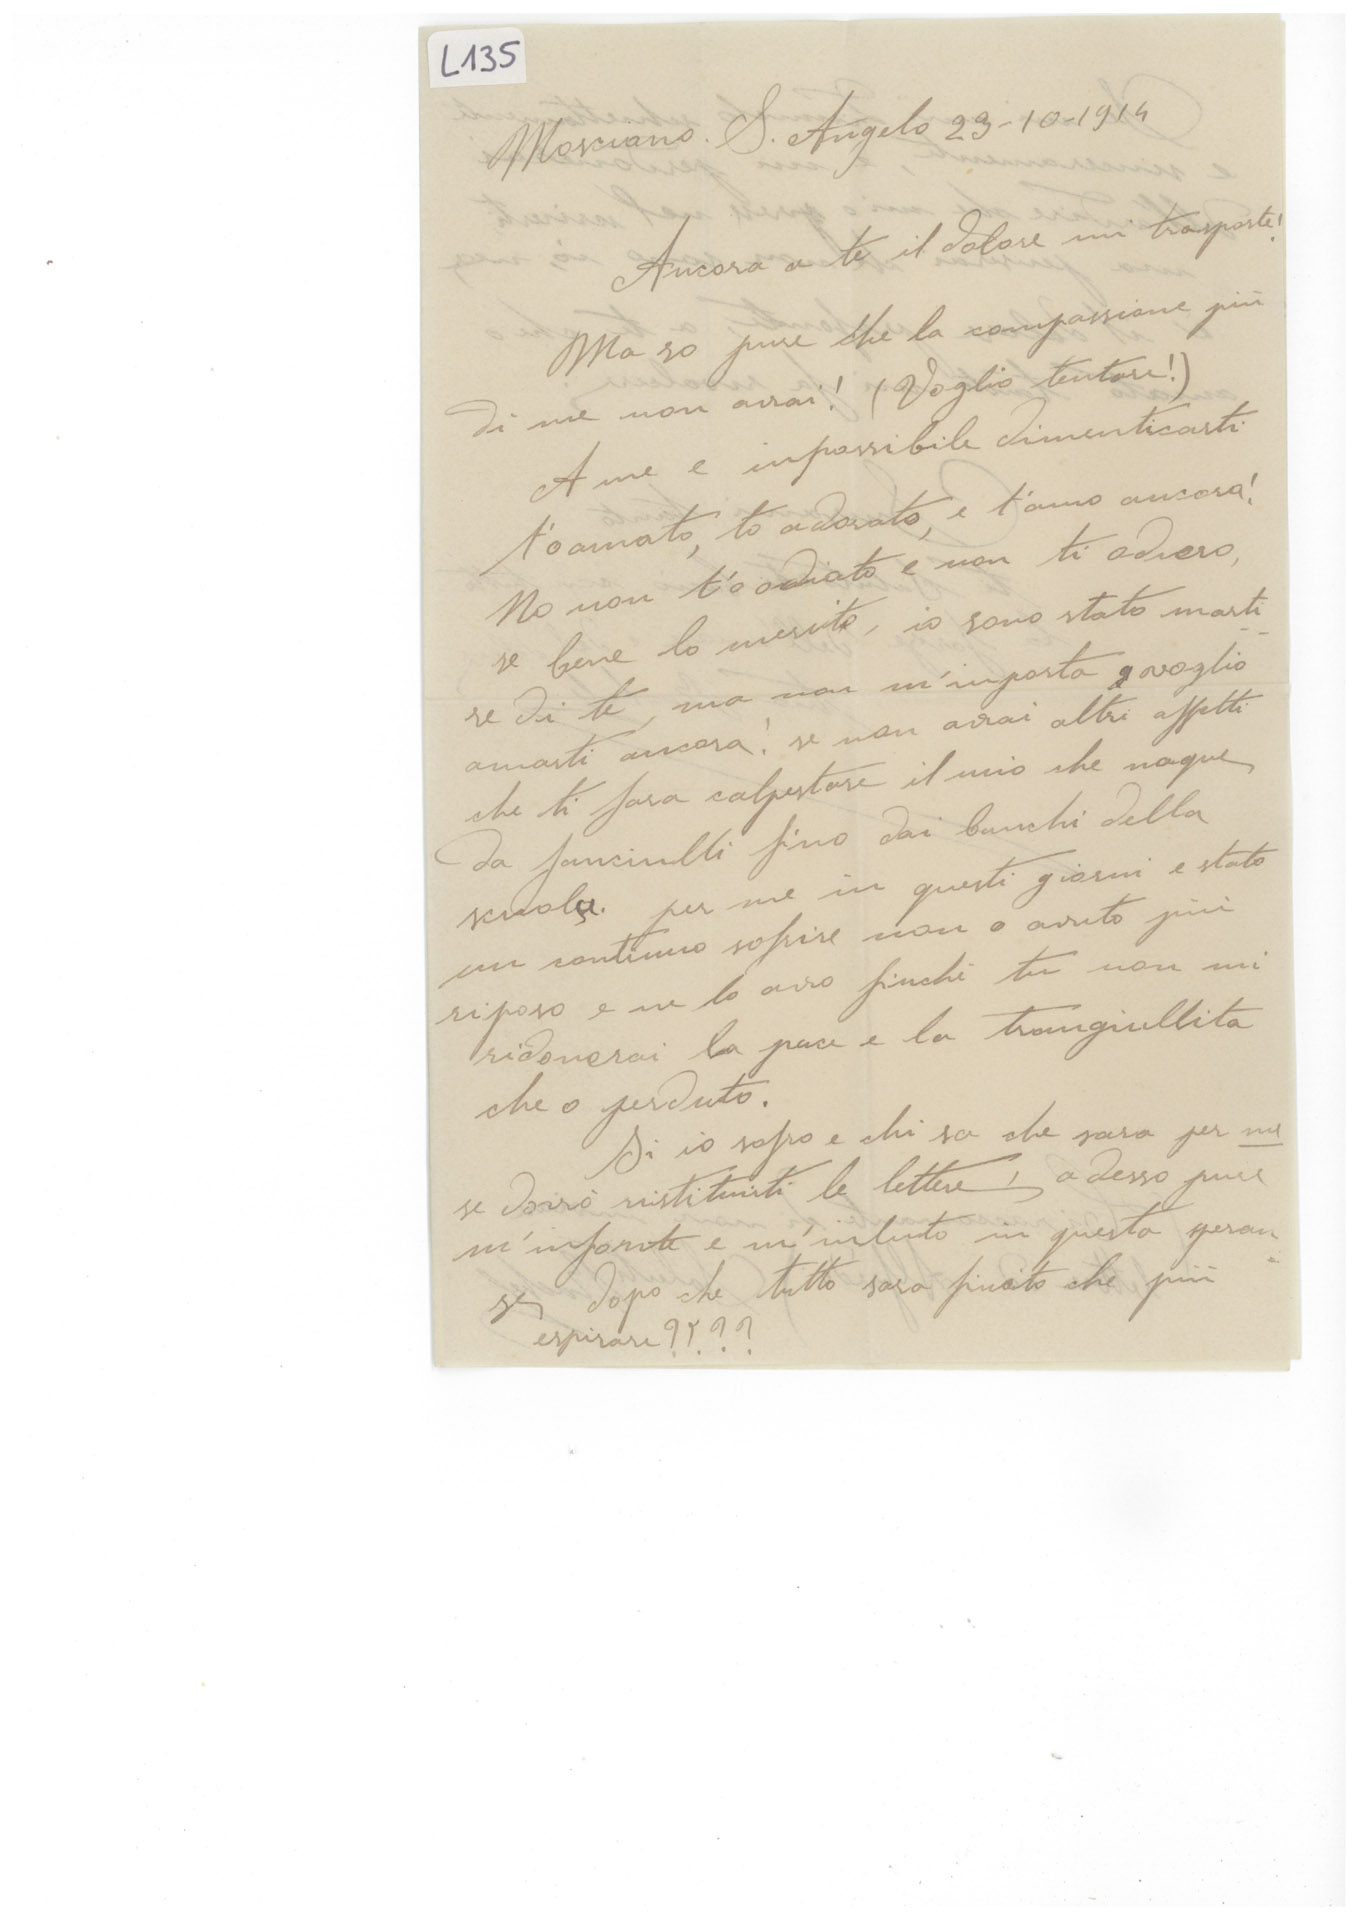 L135
Mosciano. S. Angelo 23-10-1914
Ancora a te il dolore mi trasporta!
Ma so pure che la compassione più
di me non avrai! (Voglio tentare!)
A me e inpossibile dimenticarti
t'o amato, to adorato, e t'amo ancora!
No non t'o odiato e non ti odiero,
se bene lo merito, io sono stato marti
re di te, ma non m'inporta voglio
amarti ancora! se non avrai altri affetti
che ti fara calpestare il mio che naque
da fanciulli fino dai banchi della
scuola. per me in questi giorni e stato
un continuo sofrire non o avuto più
riposo e ne lo avro finchè tu non mi
ridonerai la pace e la tranguillita
che o perduto.
Si io sofro e chi sa che sara per me
se dovrò ristituirti le lettere, adesso pure
m' e m' in questa speran
se, dopo che tutto sara finito che più
espirare????